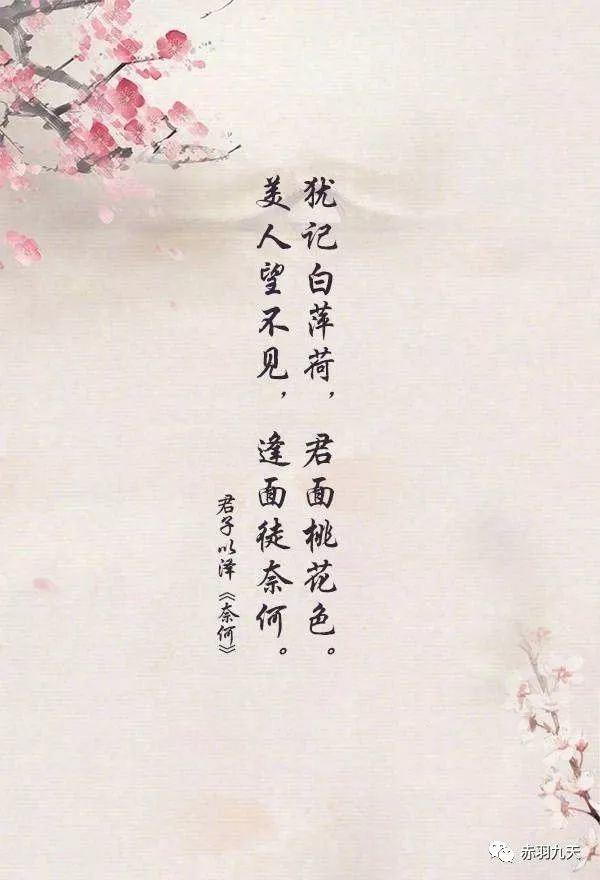 犹记白萍荷，君面桃花色。
美人望不见，逢面徒奈何。
君子以泽《奈何》
赤羽九天